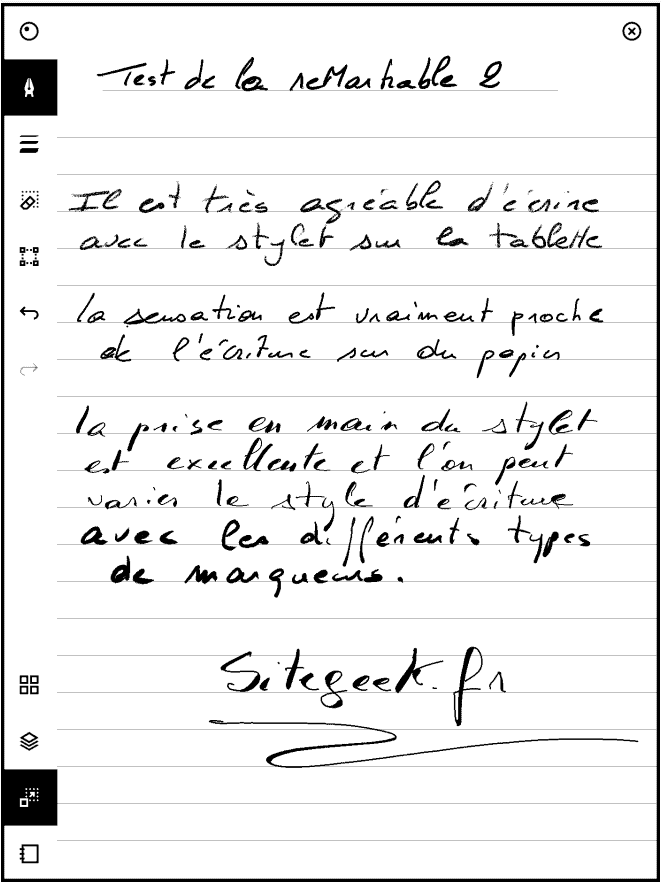 Test de la reMarkable 2
Il est très agréable d'écrire
avec le stylet sur la tablette
la sensation est vraiment proche
de l'écriture sur du papier
la prise en main du stylet
est excellente et l'on peut
varier le style d'écriture
avec les différents types
de marqueurs.
Sitegeek.fr